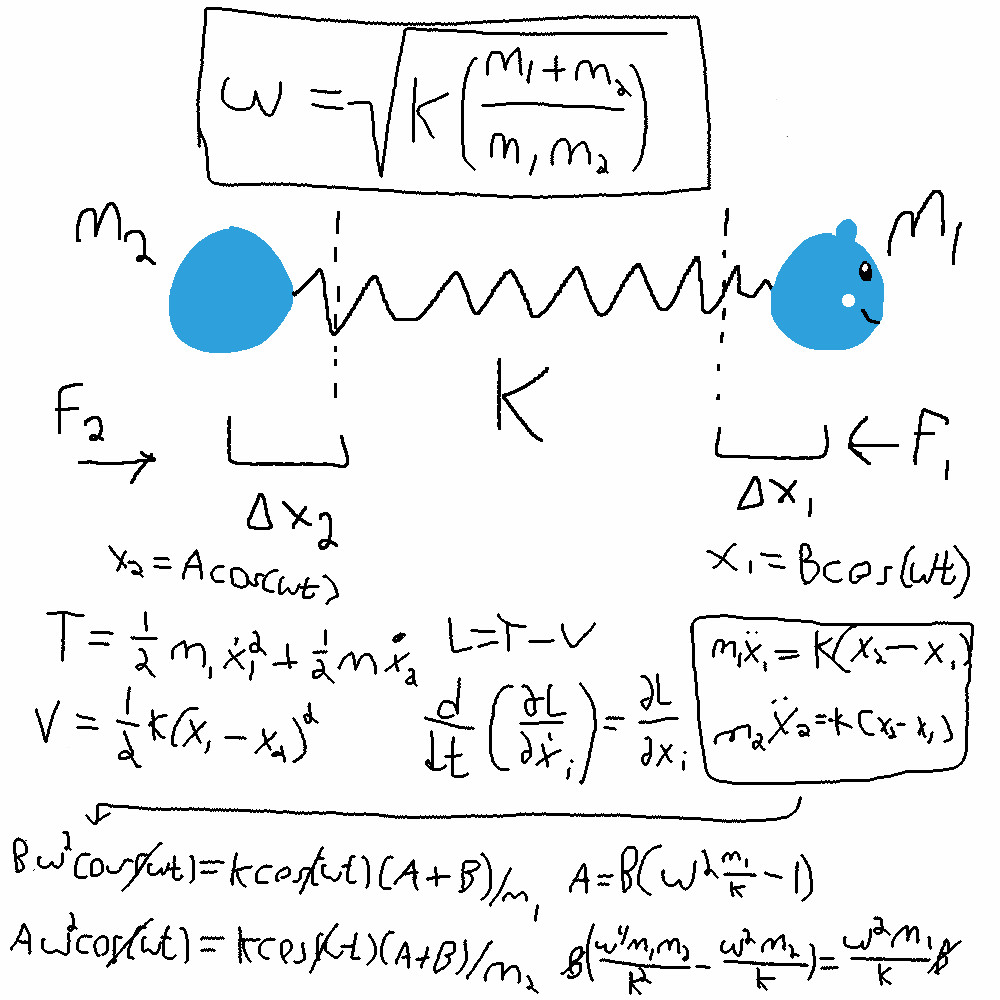 ω = √(k((m₁+m₂)/(m₁m₂)))
m₂ m₁
k
F₂ F₁
Δx₂ Δx₁
x₂ = Acos(ωt) x₁ = Bcos(ωt)
T = 1/2 m₁ẋ₁² + 1/2 mẋ₂ L=T−V m₁ẍ₁ = k(x₂ − x₁)
V = 1/2 k(x₁ − x₂)² d/dt (∂L/∂ẋᵢ) = ∂L/∂xᵢ m₂ẍ₂ = −k(x₂ − x₁)
Bω²cos(ωt) = kcos(ωt)(A+B)/m₁ A = B(ω² m₁/k − 1)
Aω²cos(ωt) = kcos(ωt)(A+B)/m₂ B(ω⁴m₁m₂/k² − ω²m₂/k) = ω²m₁/k B